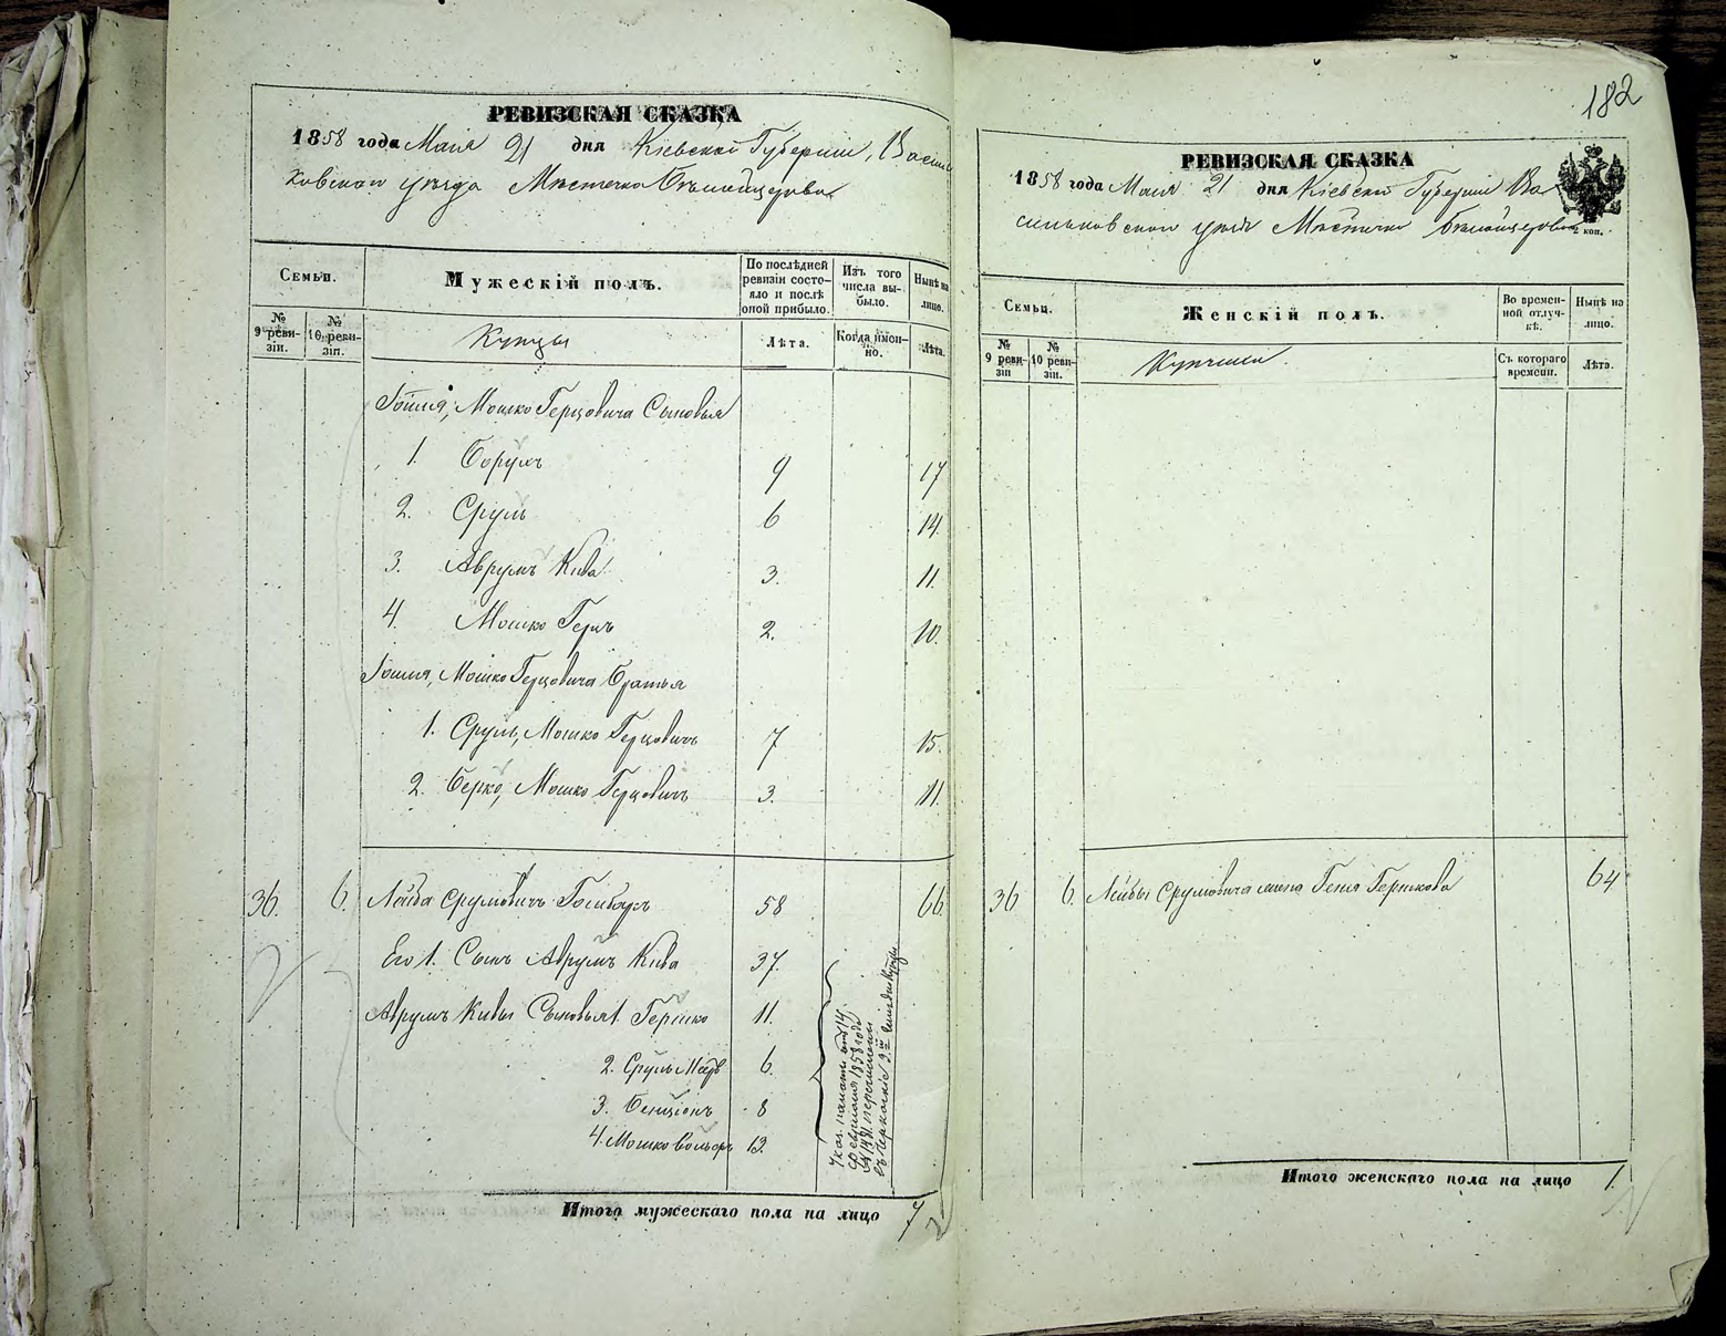 182
РЕВИЗСКАЯ СКАЗКА
1858 года Маія 21 дня Кіевской Губерніи, Василь
ковскаго уѣзда Мѣстечка
Семьи.
Мужескій полъ.
По послѣдней ревизіи состо-
яло и послѣ оной прибыло.
Изъ того числа вы-
было.
Нынѣ на лицо.
№ 9 реви-
зіи.
№ 10 реви-
зіи.
Купцы
Лѣта.
Когда имен-
но.
Лѣта.
Мошко Герцовича Сыновья
1. Борухъ 9 17
2. Сруль 6 14
3. Аврумъ Кива 3. 11.
4. Мошко Герцъ 2. 10.
Мошко Герцовича Братья
1. Сруль, Мошко Герцовичъ 7 15.
2. Берко, Мошко Герцовичъ 3. 11.
36. 6. Лейба Срулювичъ 58 66.
Его 1. Сынъ Аврумъ Кива 37.
Аврумъ Кивы Сыновья 1. Гершко 11.
2. Сруль 6.
3. Бенціонъ 8
4. Мошко Вольфъ 13.
Указ. палаты отъ 14
февраля 1858 года
перечислены
3й гильдіи купцы
Итого мужескаго пола на лицо 7
РЕВИЗСКАЯ СКАЗКА
1858 года Маія 21 дня Кіевской Губерніи Ва
сильковскаго уѣзда Мѣстечка
2 коп.
Семьи.
Женскій полъ.
Во времен-
ной отлуч-
кѣ.
Нынѣ на лицо.
№ 9 реви-
зіи
№ 10 реви-
зіи.
Купчихи
Съ котораго
времени.
Лѣта.
36 6. Лейбы Срулювича жена Геня Гершкова 64
Итого женскаго пола на лицо 1.